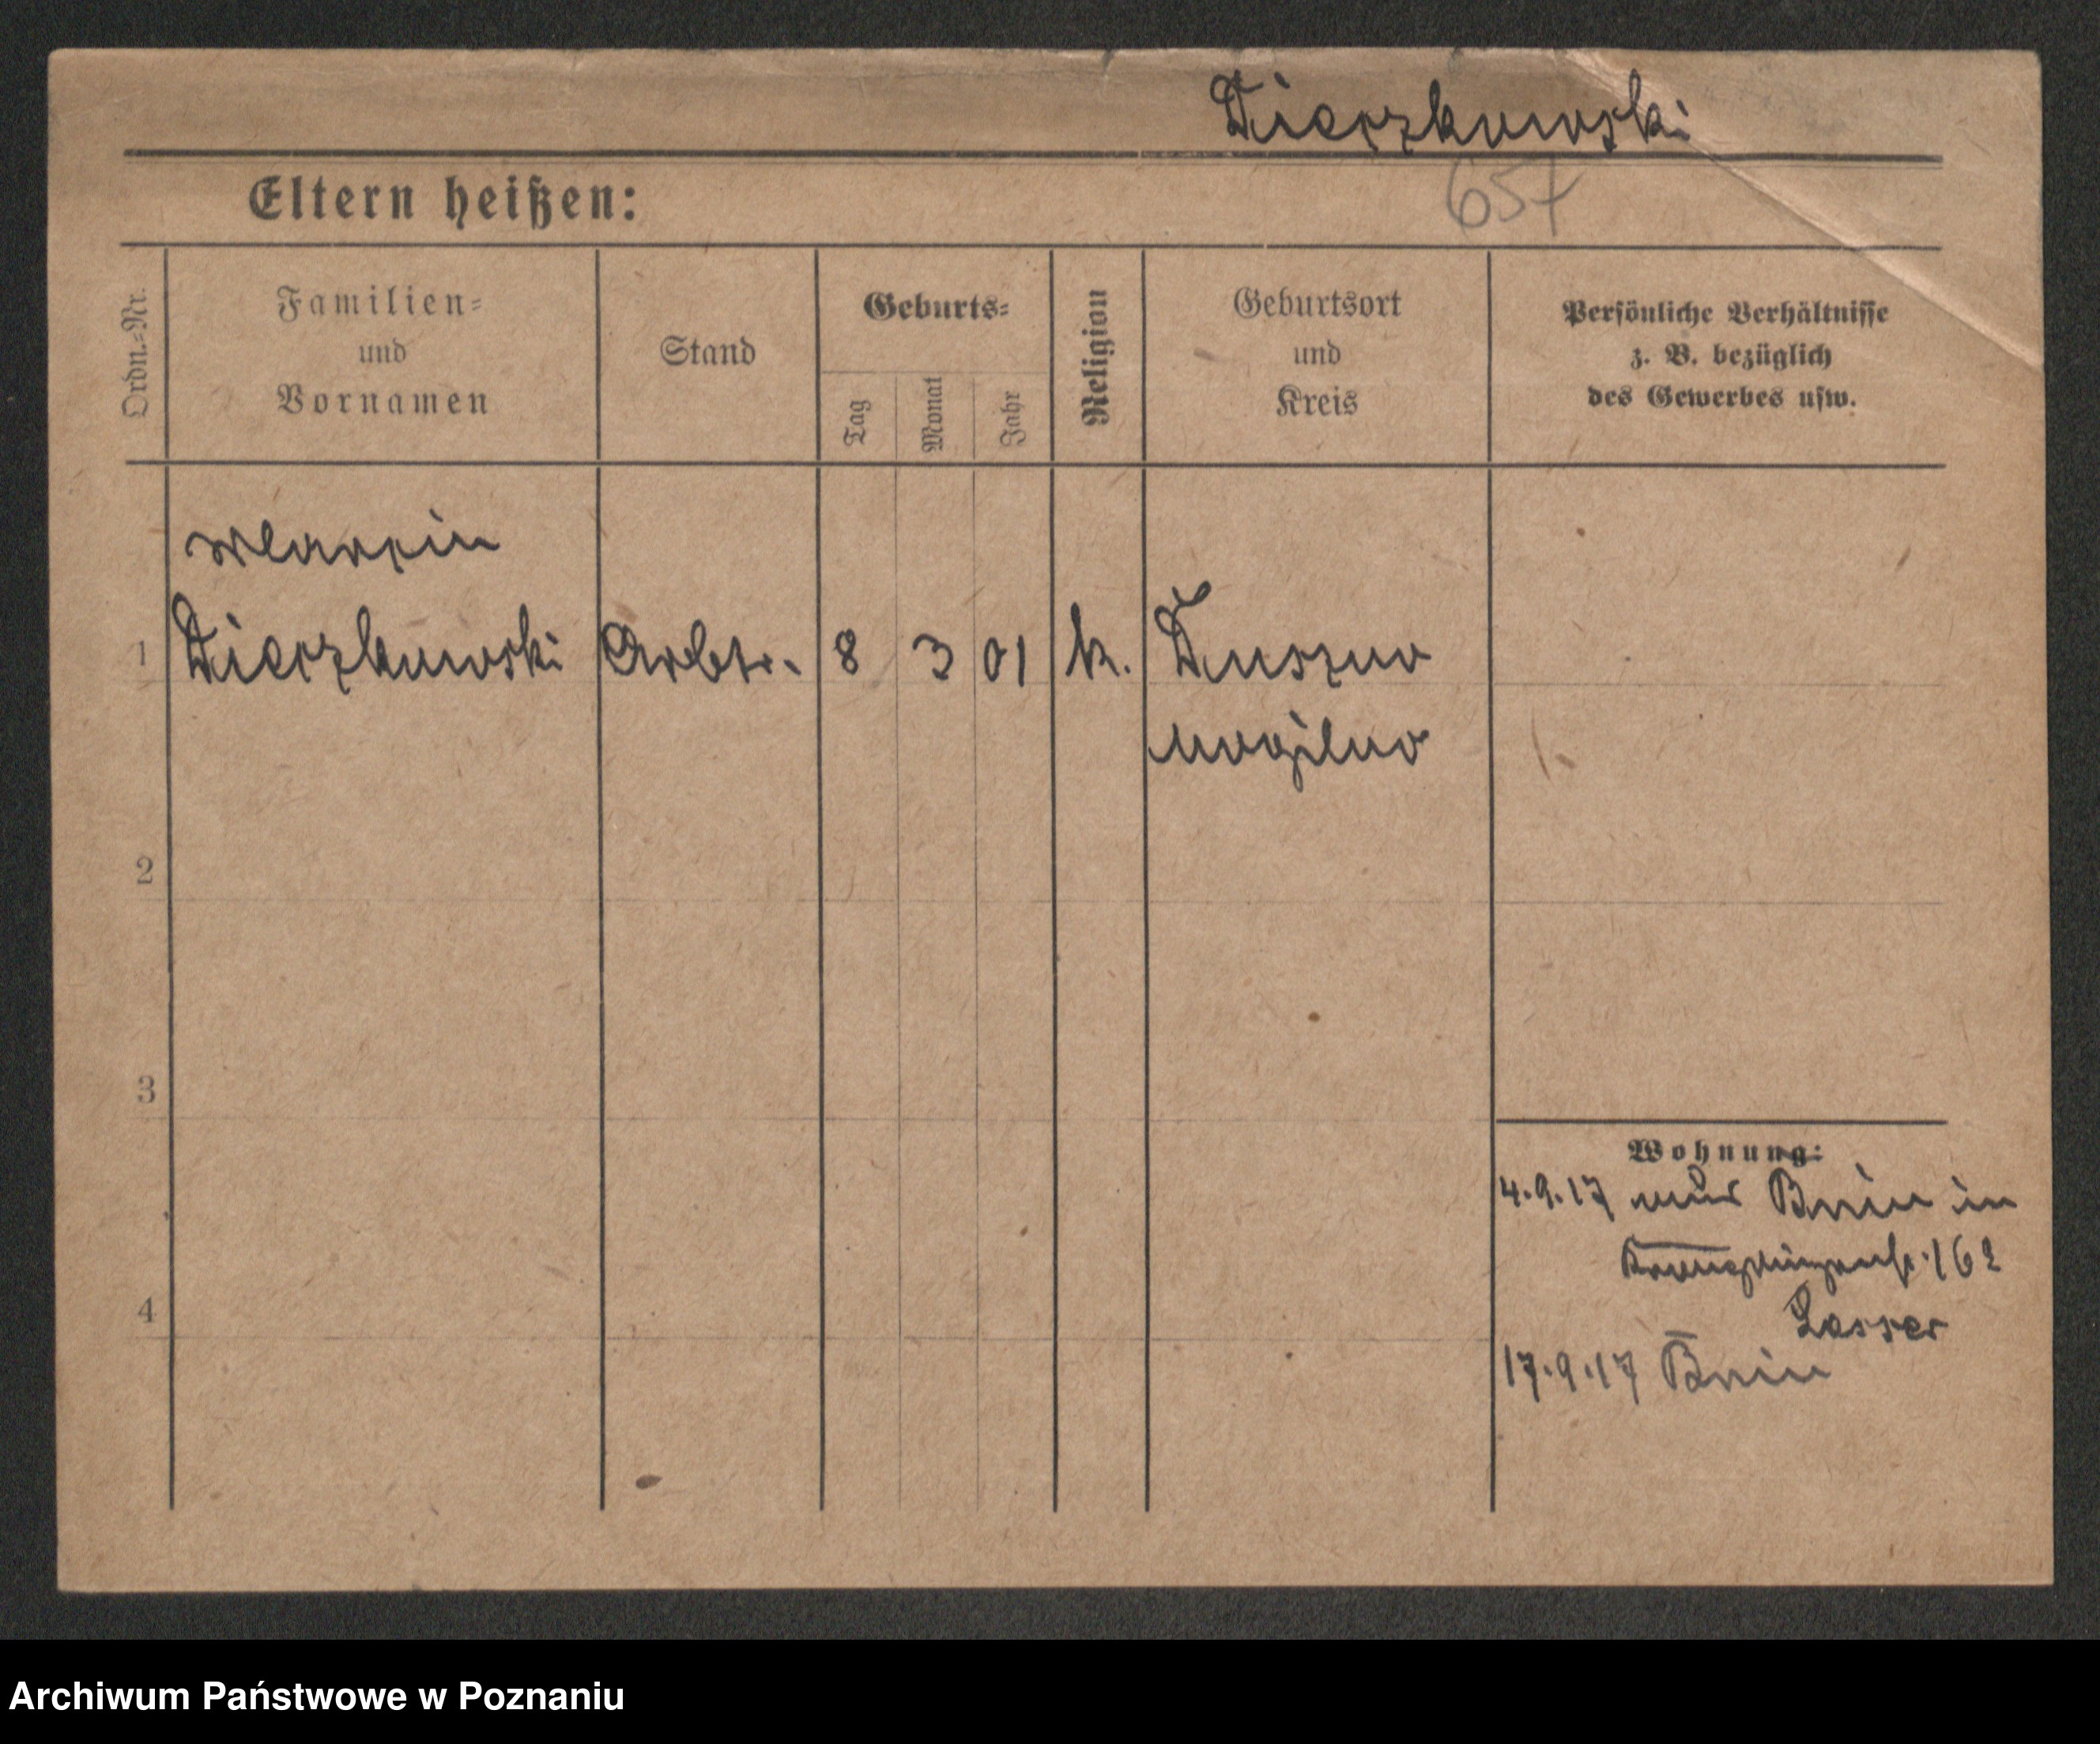 Dierzkowski
657
Eltern heißen:
Ordn.=Nr.
Familien=
und
Vornamen
Stand
Geburts=
Tag
Monat
Jahr
Religion
Geburtsort
und
Kreis
Persönliche Verhältnisse
z. B. bezüglich
des Gewerbes usw.
Marcin
1 Dierzkowski Arbtr. 8 3 01 k. Duszno
Mogilno
2
3
4
Wohnung:
4.9.17 aus Bnin in
Kronprinzenstr. 162
Lasser
17.9.17 Bnin
Archiwum Państwowe w Poznaniu